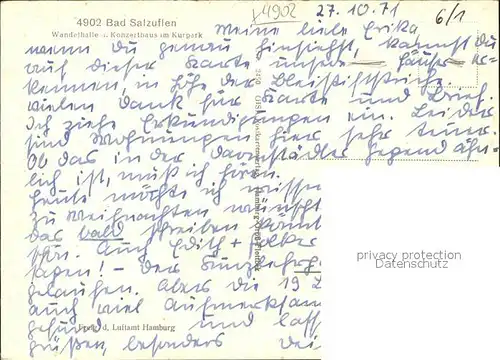 4902 Bad Salzuflen
Wandelhalle u. Konzerthaus im Kurpark
4902
27.10.71
6/1
Meine liebe Erika,
wenn du genau hinsiehst, kannst du
auf dieser Karte unser Häuser er-
kennen, in Höhe der Bleistiftstriche.
Vielen Dank für Karte und Brief.
Ich ziehe Erkundigungen ein. Leider
sind Wohnungen hier sehr teuer.
Ob das in der Gegend ähn-
lich ist, muß ich hören.
Heute möchte ich wissen
zu Weihnachten wünscht
das bald schreiben könnt
Auch Edith + Volker
sagen! - der
gelaufen. Aber die 19
auch viel Aufmerksam
gehört und lass
grüßen, besonders dei
Freig. d. Luftamt Hamburg
privacy protection
Datenschutz